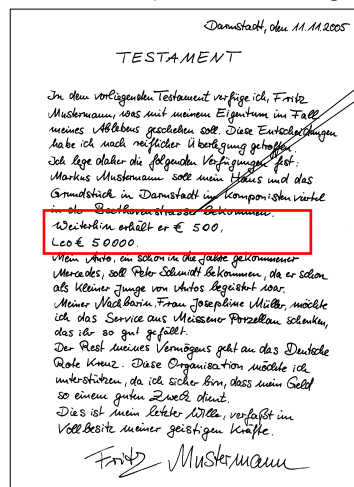 Darmstadt, den 11.11.2005
TESTAMENT
In dem vorliegenden Testament verfüge ich, Fritz
Mustermann, was mit meinem Eigentum im Fall
meines Ablebens geschehen soll. Diese Entscheidungen
habe ich nach reiflicher Überlegung getroffen.
Ich lege daher die folgenden Verfügungen fest:
Markus Mustermann soll mein Haus und das
Grundstück in Darmstadt im Komponistenviertel
in der Beethovenstrasse bekommen.
Weiterhin erhält er € 500,
Leo € 50000.
Mein Auto, ein schon in die Jahre gekommener
Mercedes, soll Peter Schmidt bekommen, da er schon
als kleiner Junge von Autos begeistert war.
Meiner Nachbarin, Frau Josephine Müller, möchte
ich das Service aus Meissener Porzellan schenken,
das ihr so gut gefällt.
Der Rest meines Vermögens geht an das Deutsche
Rote Kreuz. Diese Organisation möchte ich
unterstützen, da ich sicher bin, dass mein Geld
so einem guten Zweck dient.
Dies ist mein letzter Wille, verfaßt im
Vollbesitz meiner geistigen Kräfte.
Fritz Mustermann